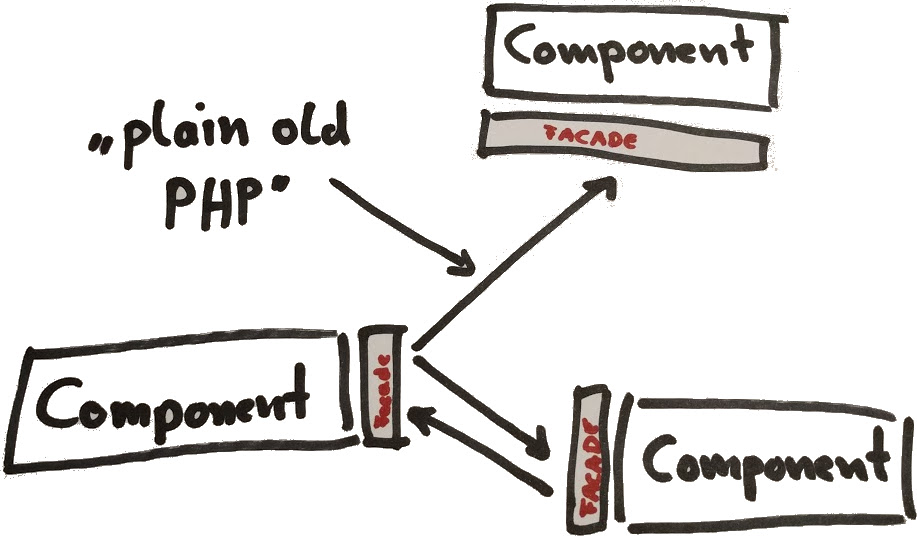 Component
FACADE
„plain old
PHP"
Component
Facade
FACADE
Component